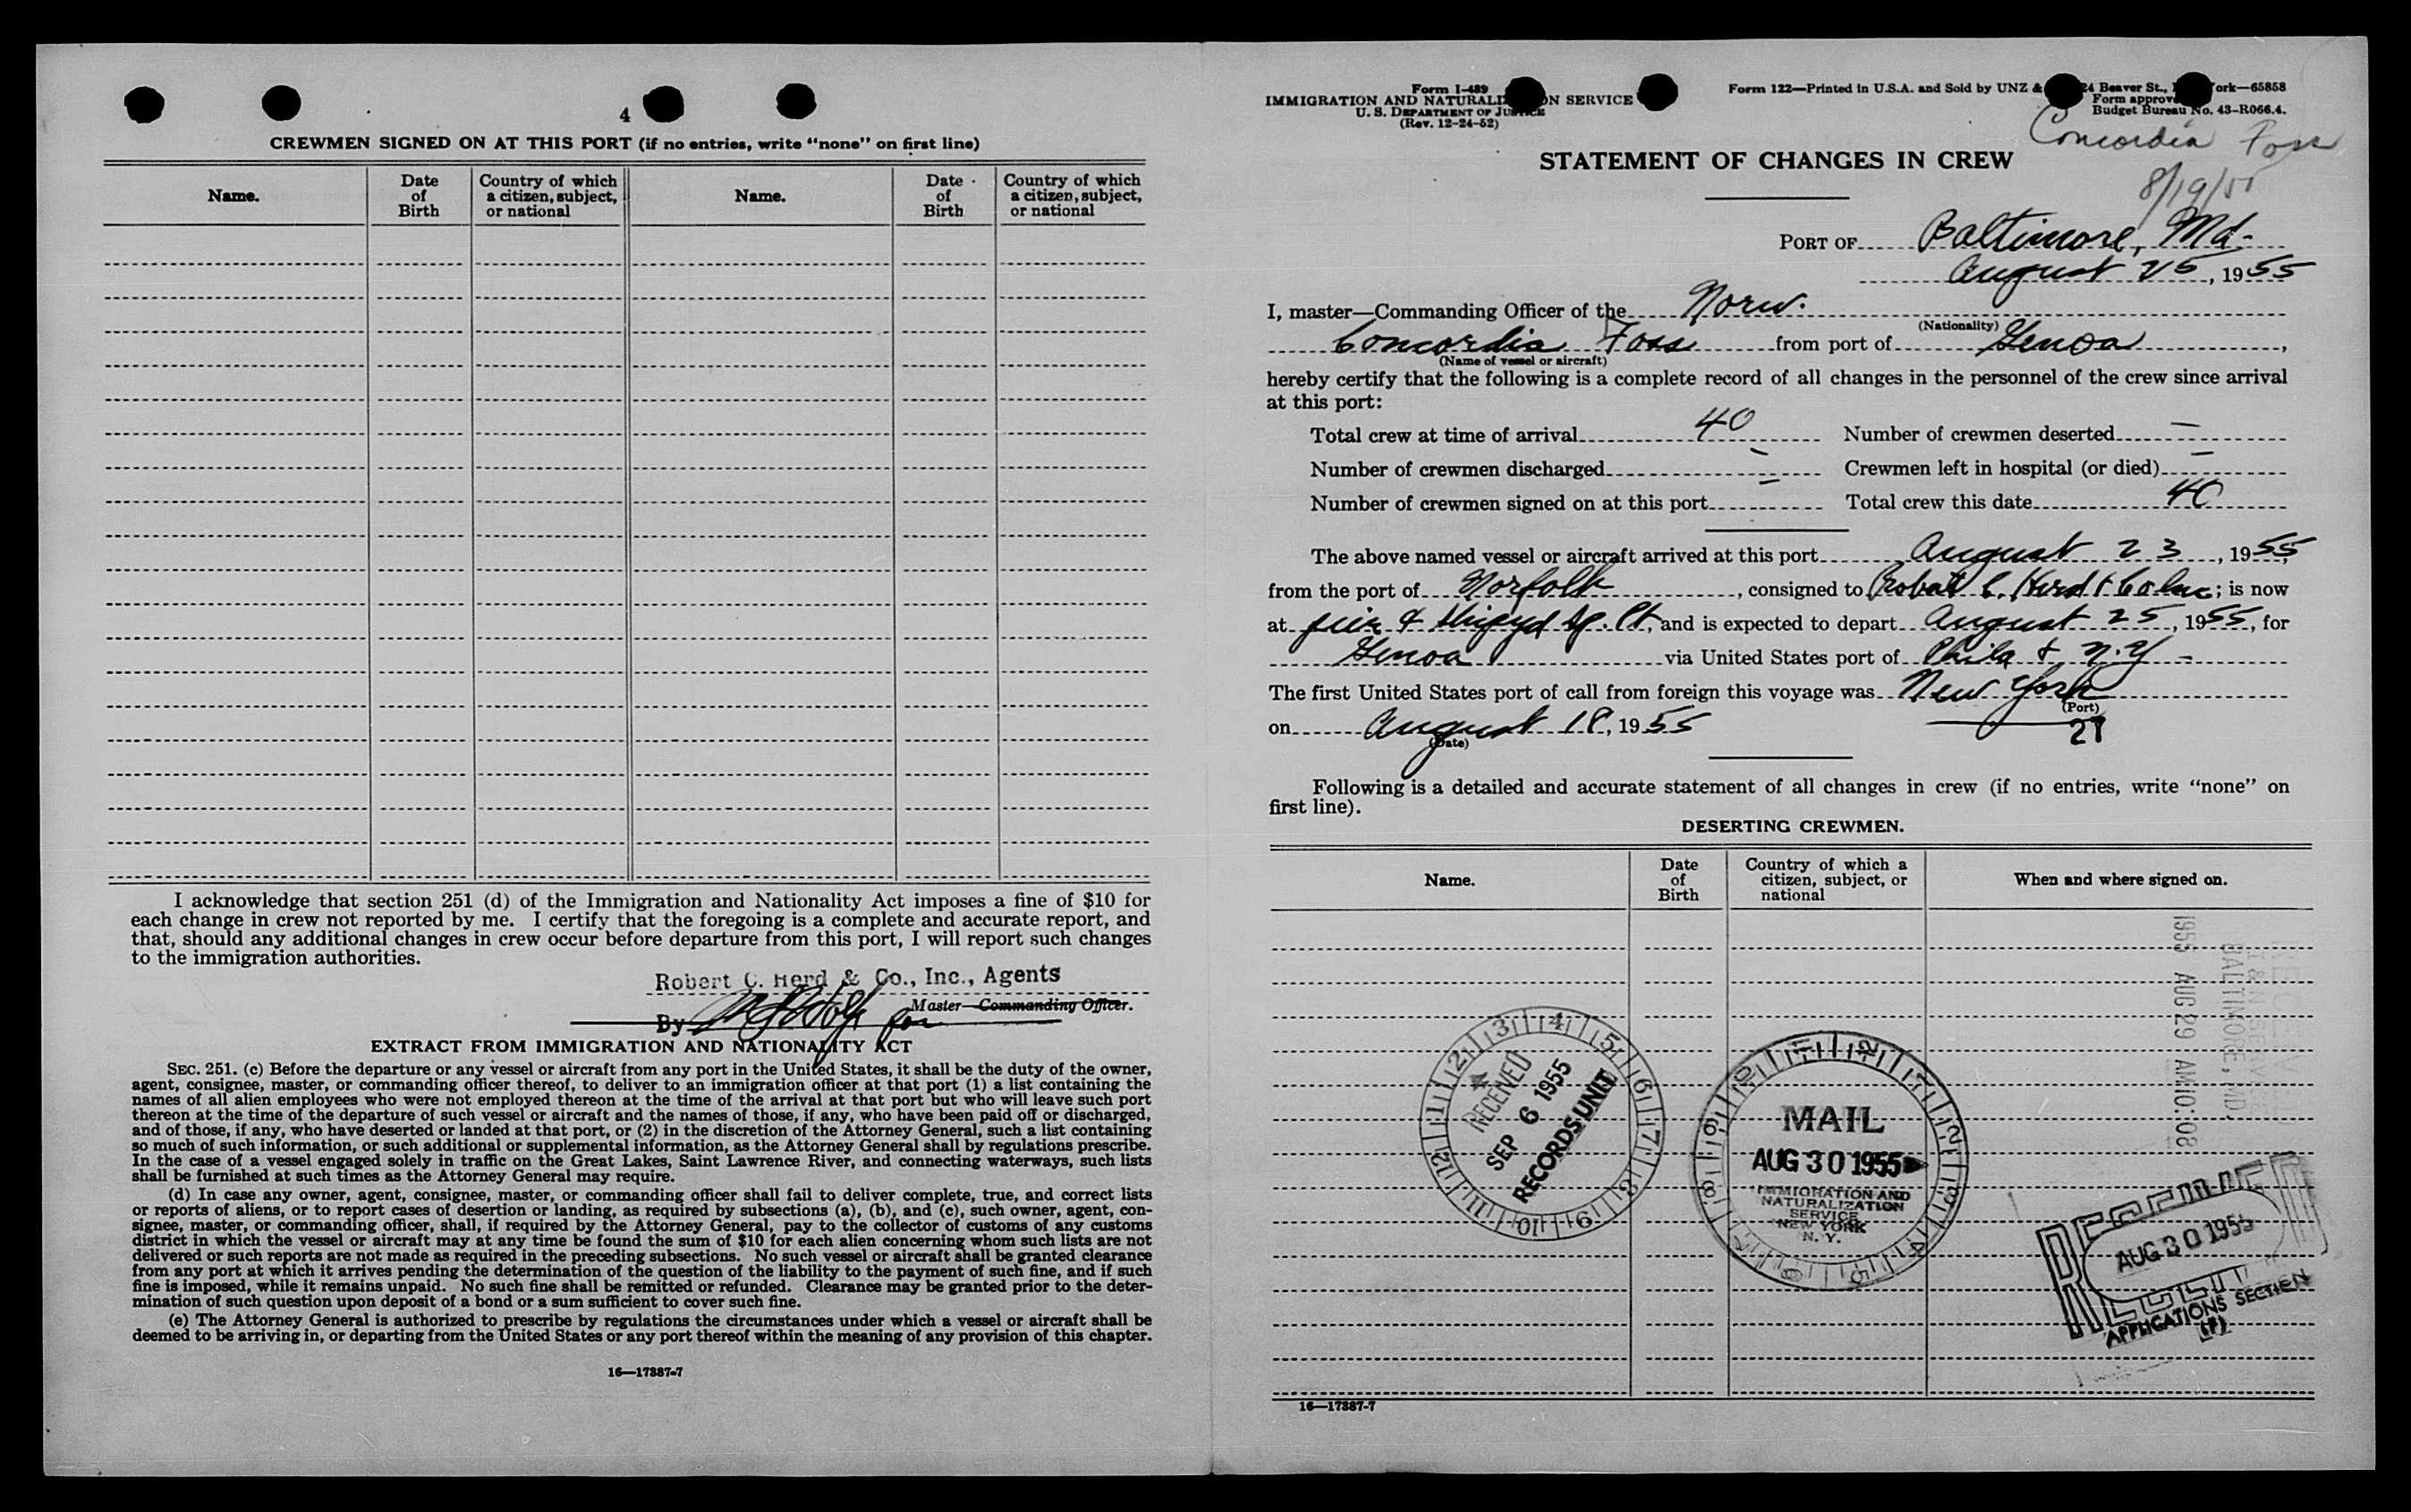 4
CREWMEN SIGNED ON AT THIS PORT (if no entries, write "none" on first line)
Name. Date of Birth Country of which a citizen, subject, or national Name. Date of Birth Country of which a citizen, subject, or national
I acknowledge that section 251 (d) of the Immigration and Nationality Act imposes a fine of $10 for
each change in crew not reported by me. I certify that the foregoing is a complete and accurate report, and
that, should any additional changes in crew occur before departure from this port, I will report such changes
to the immigration authorities.
Robert C. Herd & Co., Inc., Agents
Master—Commanding Officer.
By for
EXTRACT FROM IMMIGRATION AND NATIONALITY ACT
SEC. 251. (c) Before the departure or any vessel or aircraft from any port in the United States, it shall be the duty of the owner,
agent, consignee, master, or commanding officer thereof, to deliver to an immigration officer at that port (1) a list containing the
names of all alien employees who were not employed thereon at the time of the arrival at that port but who will leave such port
thereon at the time of the departure of such vessel or aircraft and the names of those, if any, who have been paid off or discharged,
and of those, if any, who have deserted or landed at that port, or (2) in the discretion of the Attorney General, such a list containing
so much of such information, or such additional or supplemental information, as the Attorney General shall by regulations prescribe.
In the case of a vessel engaged solely in traffic on the Great Lakes, Saint Lawrence River, and connecting waterways, such lists
shall be furnished at such times as the Attorney General may require.
(d) In case any owner, agent, consignee, master, or commanding officer shall fail to deliver complete, true, and correct lists
or reports of aliens, or to report cases of desertion or landing, as required by subsections (a), (b), and (c), such owner, agent, con-
signee, master, or commanding officer, shall, if required by the Attorney General, pay to the collector of customs of any customs
district in which the vessel or aircraft may at any time be found the sum of $10 for each alien concerning whom such lists are not
delivered or such reports are not made as required in the preceding subsections. No such vessel or aircraft shall be granted clearance
from any port at which it arrives pending the determination of the question of the liability to the payment of such fine, and if such
fine is imposed, while it remains unpaid. No such fine shall be remitted or refunded. Clearance may be granted prior to the deter-
mination of such question upon deposit of a bond or a sum sufficient to cover such fine.
(e) The Attorney General is authorized to prescribe by regulations the circumstances under which a vessel or aircraft shall be
deemed to be arriving in, or departing from the United States or any port thereof within the meaning of any provision of this chapter.
16—17887-7
Form I-489
IMMIGRATION AND NATURALIZATION SERVICE
U. S. DEPARTMENT OF JUSTICE
(Rev. 12-24-52)
Form 122—Printed in U.S.A. and Sold by UNZ & 24 Beaver St., York—65858
Form approved
Budget Bureau No. 43-R066.4.
Concordia Foss
8/19/55
STATEMENT OF CHANGES IN CREW
PORT OF Baltimore, Md.
August 25, 1955
I, master—Commanding Officer of the Norw.
(Nationality)
Concordia Foss from port of Genoa,
(Name of vessel or aircraft)
hereby certify that the following is a complete record of all changes in the personnel of the crew since arrival
at this port:
Total crew at time of arrival 40 Number of crewmen deserted —
Number of crewmen discharged - Crewmen left in hospital (or died) —
Number of crewmen signed on at this port — Total crew this date 40
The above named vessel or aircraft arrived at this port August 23, 1955,
from the port of Norfolk, consigned to Robert C. Herd & Co Inc; is now
at pier 4 Shipyd Sp. Pt, and is expected to depart August 25, 1955, for
Genoa via United States port of Phila & N.Y -
The first United States port of call from foreign this voyage was New York
(Port)
on August 18, 1955
(Date)
27
Following is a detailed and accurate statement of all changes in crew (if no entries, write "none" on
first line).
DESERTING CREWMEN.
Name. Date of Birth Country of which a citizen, subject, or national When and where signed on.
1955 AUG 29 AM 10:08
BALTIMORE, MD.
RECEIVED
SEP 6 1955
RECORDS UNIT
MAIL
AUG 30 1955
IMMIGRATION AND
NATURALIZATION
SERVICE
NEW YORK
N. Y.
RECEIVED
AUG 30 1955
APPLICATIONS SECTION
(P)
16—17887-7